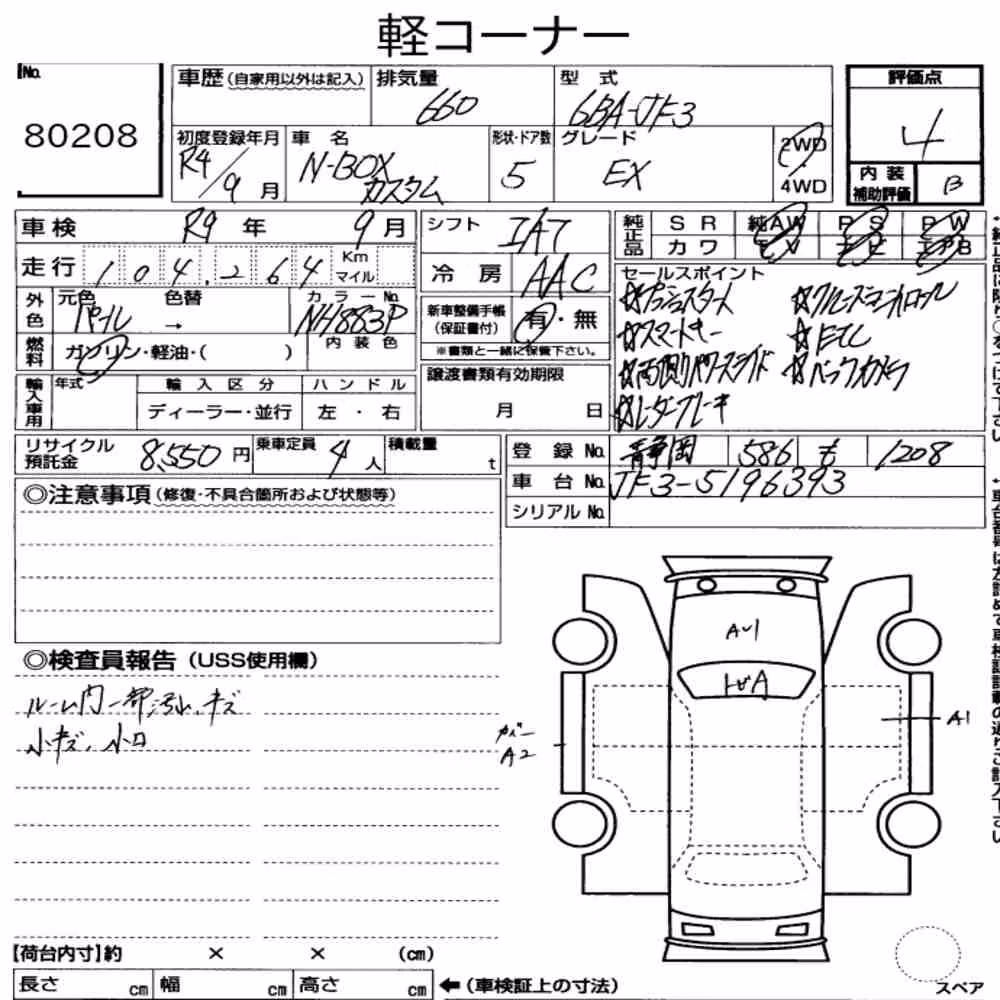 軽コーナー
No. 80208
車歴(自家用以外は記入) 排気量 660 型式 6BA-JF3
初度登録年月 R4/9月 車名 N-BOX カスタム 形状・ドア数 5 グレード EX 2WD 4WD
評価点 4
内装補助評価 B
車検 R9年 9月 シフト IAT
純正品 SR 純AW PS PW
カワ TV エアB
走行 104,264 Km マイル 冷房 AAC
外色 元色 パール 色替 → カラーNo. NH883P
内装色
燃料 ガソリン・軽油・( )
新車整備手帳(保証書付) 有・無
※書類と一緒に保管下さい。
セールスポイント
☆プッシュスタート ☆クルーズコントロール
☆スマートキー ☆ETC
☆両側パワースライド ☆バックカメラ
☆レーダーブレーキ
輸入車用 年式 輸入区分 ハンドル
ディーラー・並行 左・右
譲渡書類有効期限
月 日
リサイクル預託金 8,550円 乗車定員 4人 積載量 t
登録No. 静岡 586 も 1208
車台No. JF3-5196393
シリアルNo.
◎注意事項(修復・不具合箇所および状態等)
◎検査員報告(USS使用欄)
ルーム内一部汚れ、キズ
小キズ、小凹
AU1
A1
カバー
A2
【荷台内寸】約 × × (cm)
長さ cm 幅 cm 高さ cm ←(車検証上の寸法)
スペア